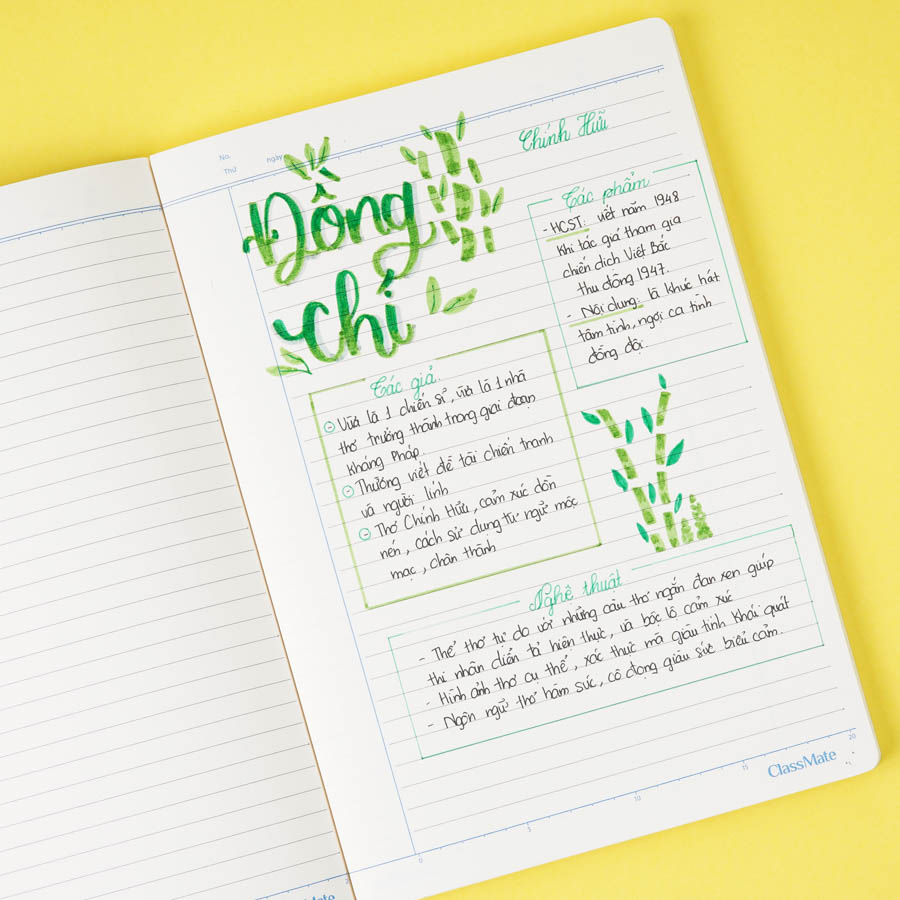 No.
Thứ
ngày
Đồng
chí
Chính Hữu
Tác phẩm
- HCST: viết năm 1948
khi tác giả tham gia
chiến dịch Việt Bắc
thu đông 1947.
- Nội dung: là khúc hát
tâm tình, ngợi ca tình
đồng đội.
Tác giả
Vừa là 1 chiến sĩ, vừa là 1 nhà
thơ trưởng thành trong giai đoạn
kháng Pháp.
Thường viết đề tài chiến tranh
và người lính
Thơ Chính Hữu, cảm xúc dồn
nén, cách sử dụng từ ngữ mộc
mạc, chân thành
Nghệ thuật
- Thể thơ tự do với những câu thơ ngắn đan xen giúp
thi nhân diễn tả hiện thực, và bộc lộ cảm xúc
- Hình ảnh thơ cụ thể, xác thực mà giàu tính khái quát
- Ngôn ngữ thơ hàm súc, cô đọng giàu sức biểu cảm.
0 5 10 15 20
ClassMate